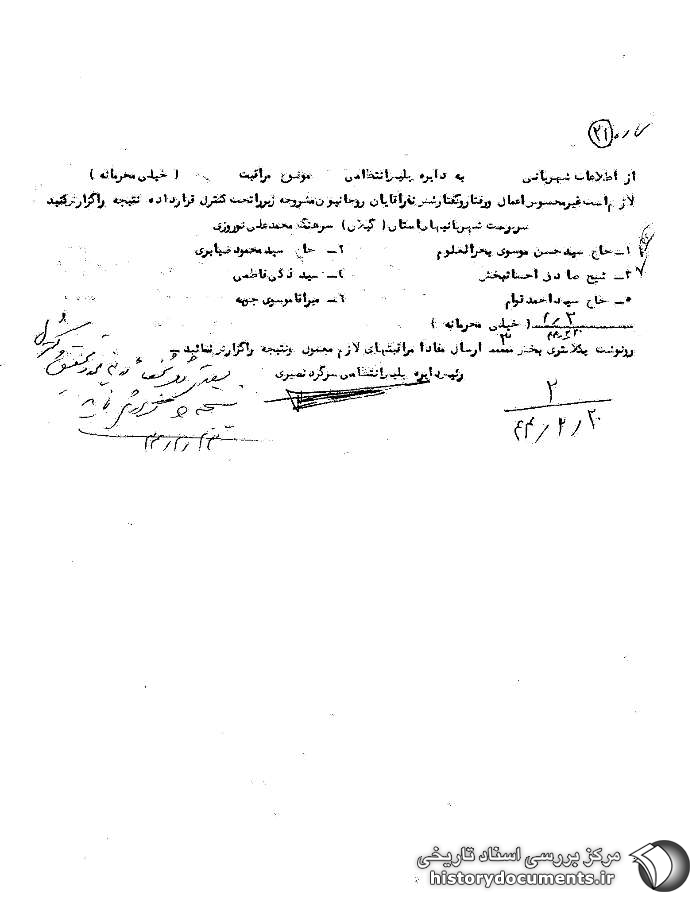 ۲۱
از اطلاعات شهربانی به دایره پلیس انتظامی موضوع مراقبت ( خیلی محرمانه )
لازم است غیرمحسوس اعمال و رفتار و گفتار شش نفر آقایان روحانیون مشروحه زیر را تحت کنترل قرار داده نتیجه را گزارش کنید
سرپرست شهربانیهای استان ( گیلان ) سرهنگ محمدعلی نوروزی
۱ــ حاج سید حسن موسوی بحرالعلوم ۲ــ حاج سید محمود ضیابری
۳ــ شیخ صادق احسانبخش ۴ــ سید ذکی فاطمی
۵ــ حاج سید احمد قوام ۶ــ میرآقا موسوی
( خیلی محرمانه )
رونوشت بکلانتری بخش ۳ ارسال مفادا مراقبتهای لازم معمول و نتیجه را گزارش نمائید ــ
رئیس دایره پلیس انتظامی سرگرد نصیری
۲
۴۴/۲/۲۰
مرکز بررسی اسناد تاریخی
historydocuments.ir